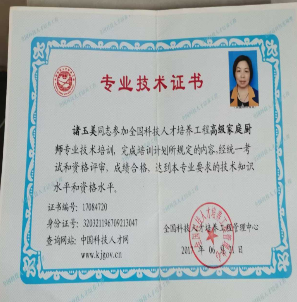 专业技术证书
诸玉美同志参加全国科技人才培养工程高级家庭厨
师专业技术培训，完成培训计划所规定的内容，经统一考
试和资格评审，成绩合格，达到本专业要求的技术知识
水平和资格水平。
证书编号：17084720
身份证号：320321196709213047
查询网站：中国科技人才网
www.kjgov.cn
全国科技人才培养工程管理中心